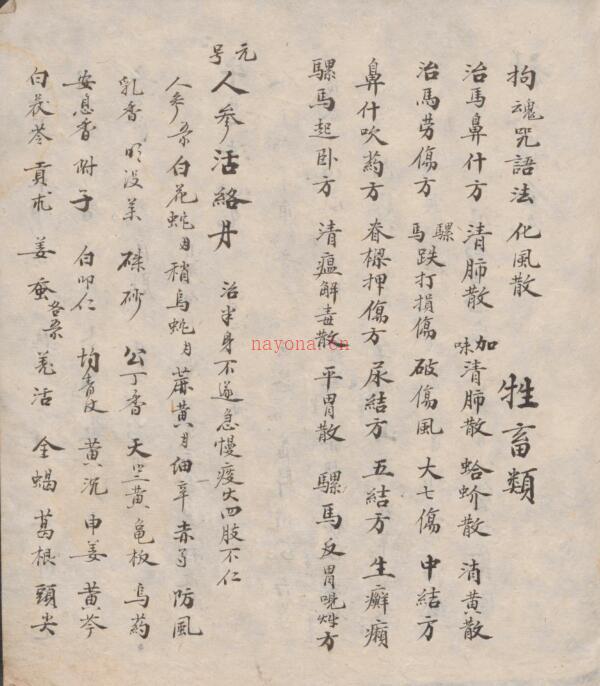 拘魂咒語法 化風散 牲畜類
治馬鼻什方 清肺散 加味清肺散 蛤蚧散 消黃散
治馬勞傷方 騾馬跌打損傷 破傷風 大七傷 中結方
鼻什吹药方 脊樑押傷方 尿結方 五結方 生癬癩
騾馬起卧方 清瘟解毒散 平胃散 騾馬反胃 方
元号 人參活絡丹 治半身不遂急慢 四肢不仁
人参 白花蛇 稍烏蛇 蔴黃 細辛 赤 防風
乳香 明没 硃砂 公丁香 天 黃 龜板 烏药
安息香 附子 白叩仁 均青皮 黃 申姜 黃芩
白茯苓 貢 姜蚕 各 羌活 全蝎 葛根 頭尖
nayona.cn